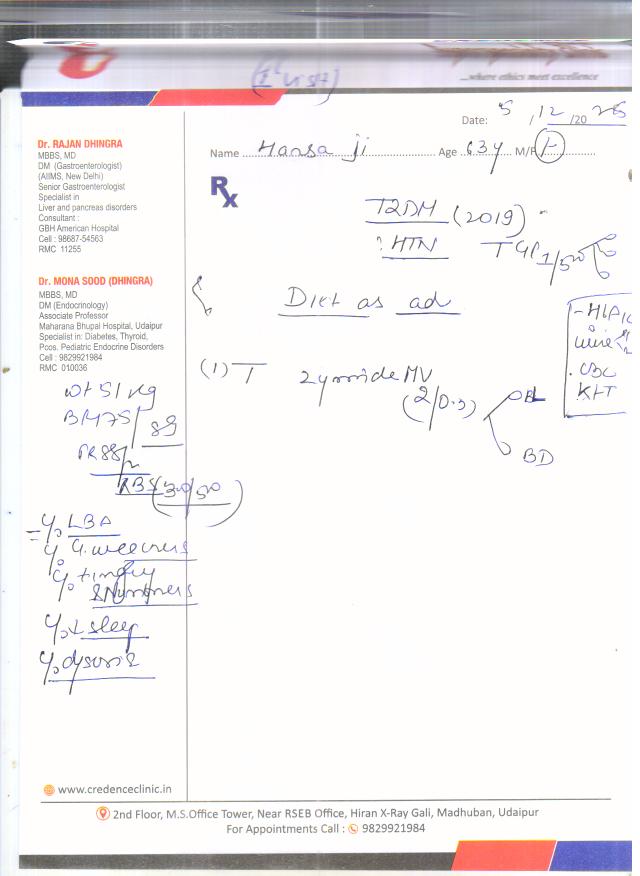 (I visit)
...where ethics meet excellence
Date: 5 / 12 / 20 25
Dr. RAJAN DHINGRA
MBBS, MD
DM (Gastroenterologist)
(AIIMS, New Delhi)
Senior Gastroenterologist
Specialist in
Liver and pancreas disorders
Consultant :
GBH American Hospital
Cell : 98687-54563
RMC 11255
Dr. MONA SOOD (DHINGRA)
MBBS, MD
DM (Endocrinology)
Associate Professor
Maharana Bhupal Hospital, Udaipur
Specialist in: Diabetes, Thyroid,
Pcos. Pediatric Endocrine Disorders
Cell : 9829921984
RMC 010036
Wt 51 kg
89
RBS
c/o LBA
c/o G. weakness
c/o tingling
& Numbness
c/o ↓ sleep
c/o dysuria
Name Hansa ji Age 63y M/F
Rx
T2DM (2019)
? HTN
Diet as ad
(1) T Zyrride MV
(2/0.3) BL
BD
Urine
CBC
KFT
www.credenceclinic.in
2nd Floor, M.S.Office Tower, Near RSEB Office, Hiran X-Ray Gali, Madhuban, Udaipur
For Appointments Call : 9829921984